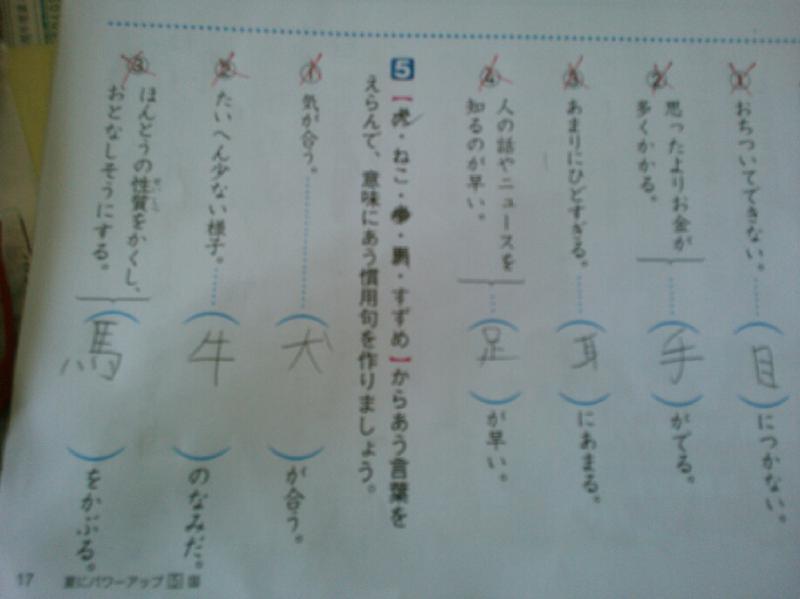 ① おちついてできない。 (目)につかない。
② 思ったよりお金が
多くかかる。 (手)がでる。
③ あまりにひどすぎる。 (耳)にあまる。
④ 人の話やニュースを
知るのが早い。 (足)が早い。
5 【虎・ねこ・・・すずめ】からあう言葉を
えらんで、意味にあう慣用句を作りましょう。
① 気が合う。 (犬)が合う。
② たいへん少ない様子。 (牛)のなみだ。
③ ほんとうの性質をかくし、
おとなしそうにする。 (馬)をかぶる。
17 夏にパワーアップ 5 国